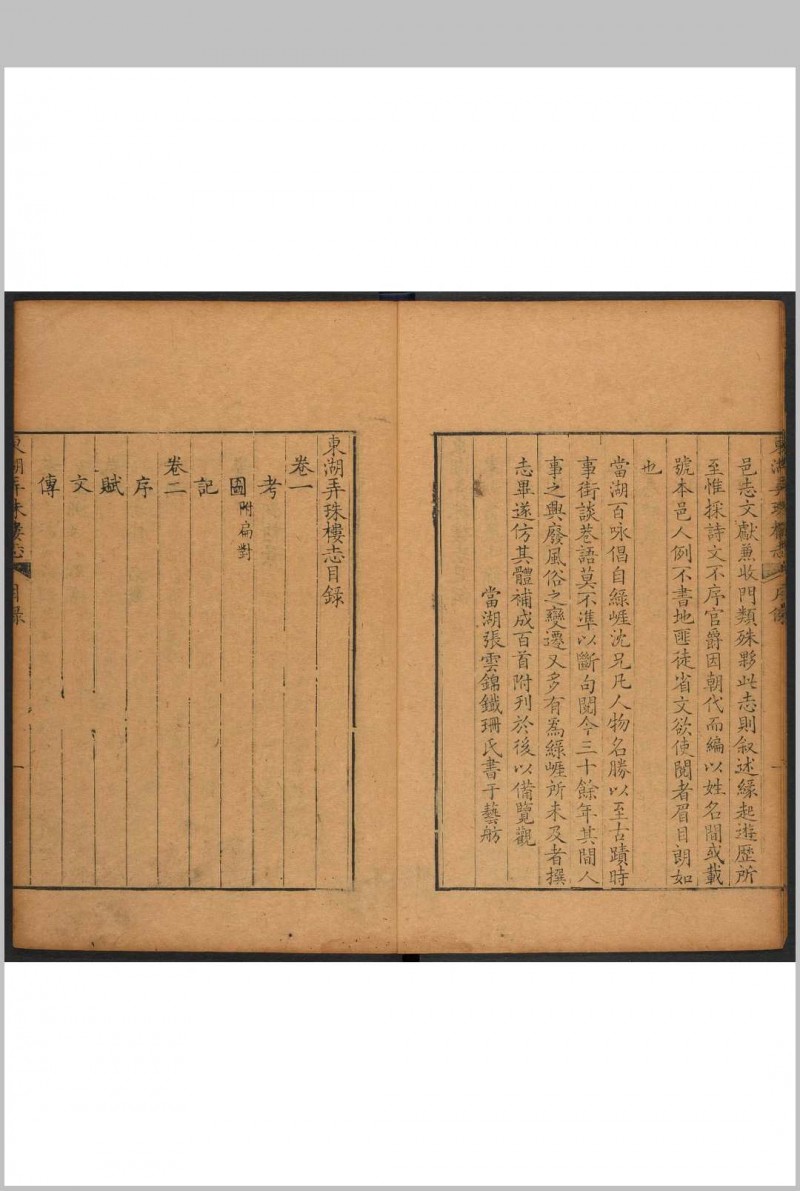 邑志文獻兼收門類殊夥此志則叙述緣起遊歷所
至惟採詩文不序官爵因朝代而編以姓名間或載
號本邑人例不書地匪徒省文欲使閱者眉目朗如
也
當湖百咏倡自綠崕沈兄凡人物名勝以至古蹟時
事街談巷語莫不準以斷句閱今三十餘年其間人
事之興廢風俗之變遷又多有爲綠崕所未及者撰
志畢遂仿其體補成百首附刋於後以備覽觀
當湖張雲錦鐵珊氏書于藝舫
東湖弄珠樓志目録
卷一
考
圖附扁對
記
卷二
序
賦
文
傳
東湖弄珠樓志
目録
一